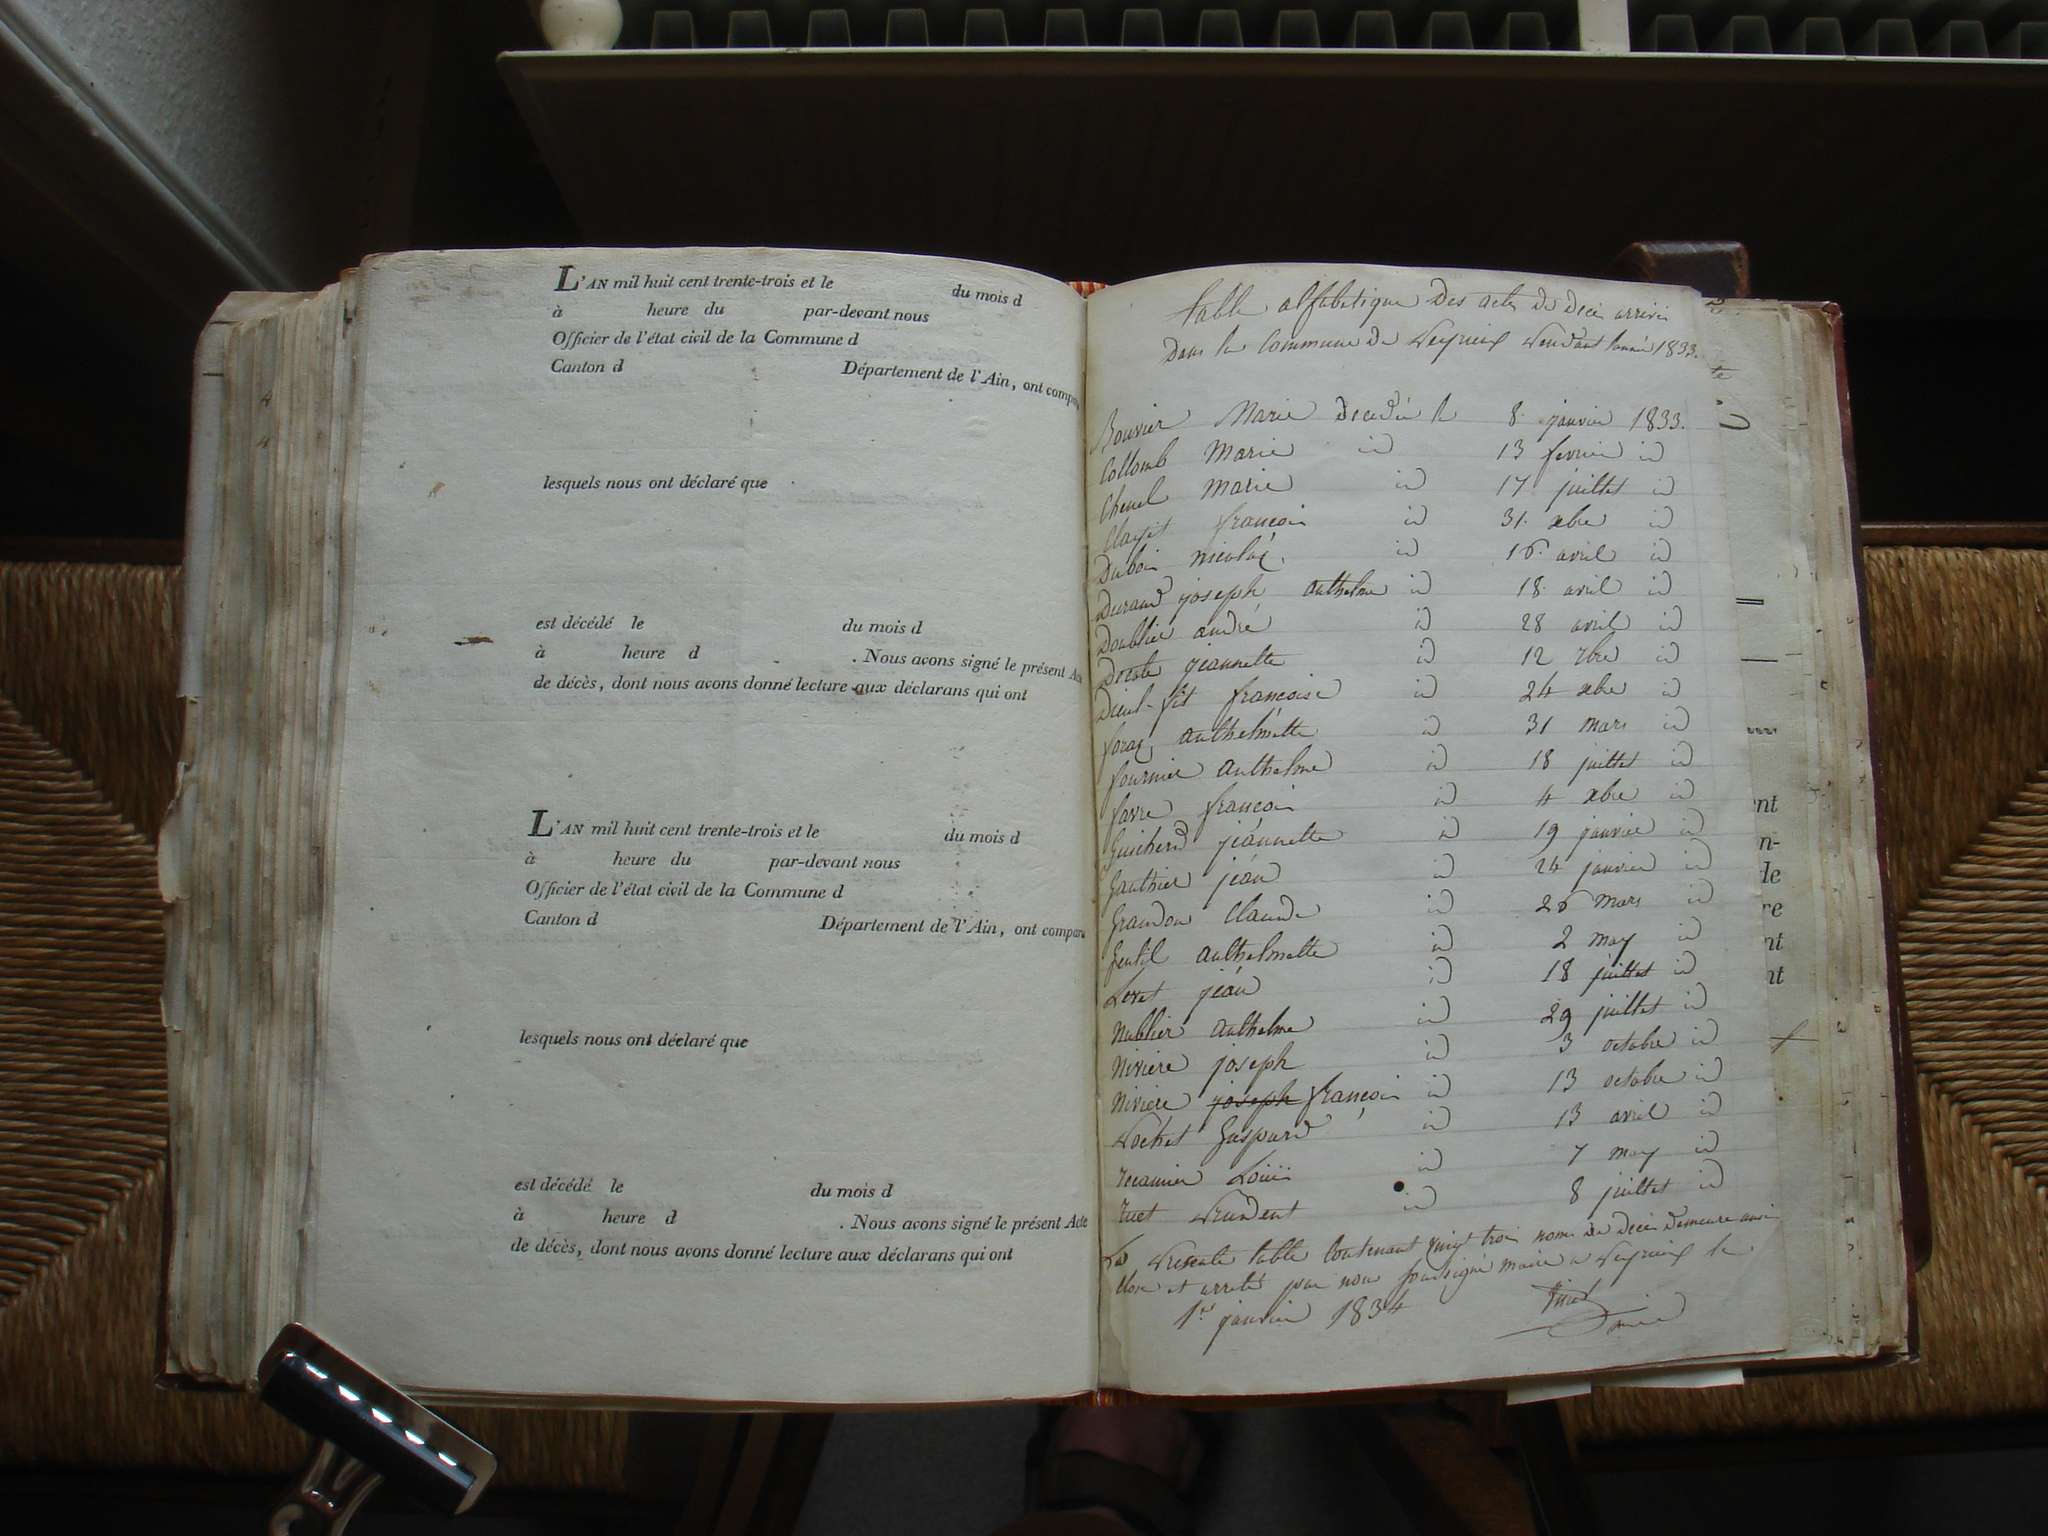 L'AN mil huit cent trente-trois et le du mois d
à heure du par-devant nous
Officier de l'état civil de la Commune d
Canton d Département de l'Ain, ont compar
lesquels nous ont déclaré que
est décédé le du mois d
à heure d . Nous avons signé le présent Acte
de décès, dont nous avons donné lecture aux déclarans qui ont
L'AN mil huit cent trente-trois et le du mois d
à heure du par-devant nous
Officier de l'état civil de la Commune d
Canton d Département de l'Ain, ont comparu
lesquels nous ont déclaré que
est décédé le du mois d
à heure d . Nous avons signé le présent Acte
de décès, dont nous avons donné lecture aux déclarans qui ont
table alfabetique Des actes de Décès arrivés
Dans la Commune de Peyrieux Pendant l'année 1833.
Bouvier Marie Décédée le 8 janvier 1833.
Collomb Marie id 13 fevrier id
Chenel Marie id 17 juillet id
françois id 31 xbre id
Dubois nicolas id 16 avril id
Durand joseph anthelme id 18 avril id
Doublier andré id 28 avril id
jeannette id 12 7bre id
Dieul-fit françoise id 24 xbre id
anthelmette id 31 mars id
fournier anthelme id 18 juillet id
favre françois id 4 xbre id
Guicherd jeannette id 19 janvier id
Gauthier jean id 24 janvier id
Grandon Claude id 26 mars id
Gentil anthelmette id 2 may id
jean id 18 juillet id
Nublier anthelme id 29 juillet id
Niviere joseph id 3 octobre id
Niviere joseph françois id 13 octobre id
Pochet Gaspard id 13 avril id
recamier Louis id 7 may id
ruet Prudent id 8 juillet id
La Presente table Contenant vingt trois noms de Décès Demeure ainsi
Close et arrêté par nous soussigné maire a Peyrieux le
1er janvier 1834